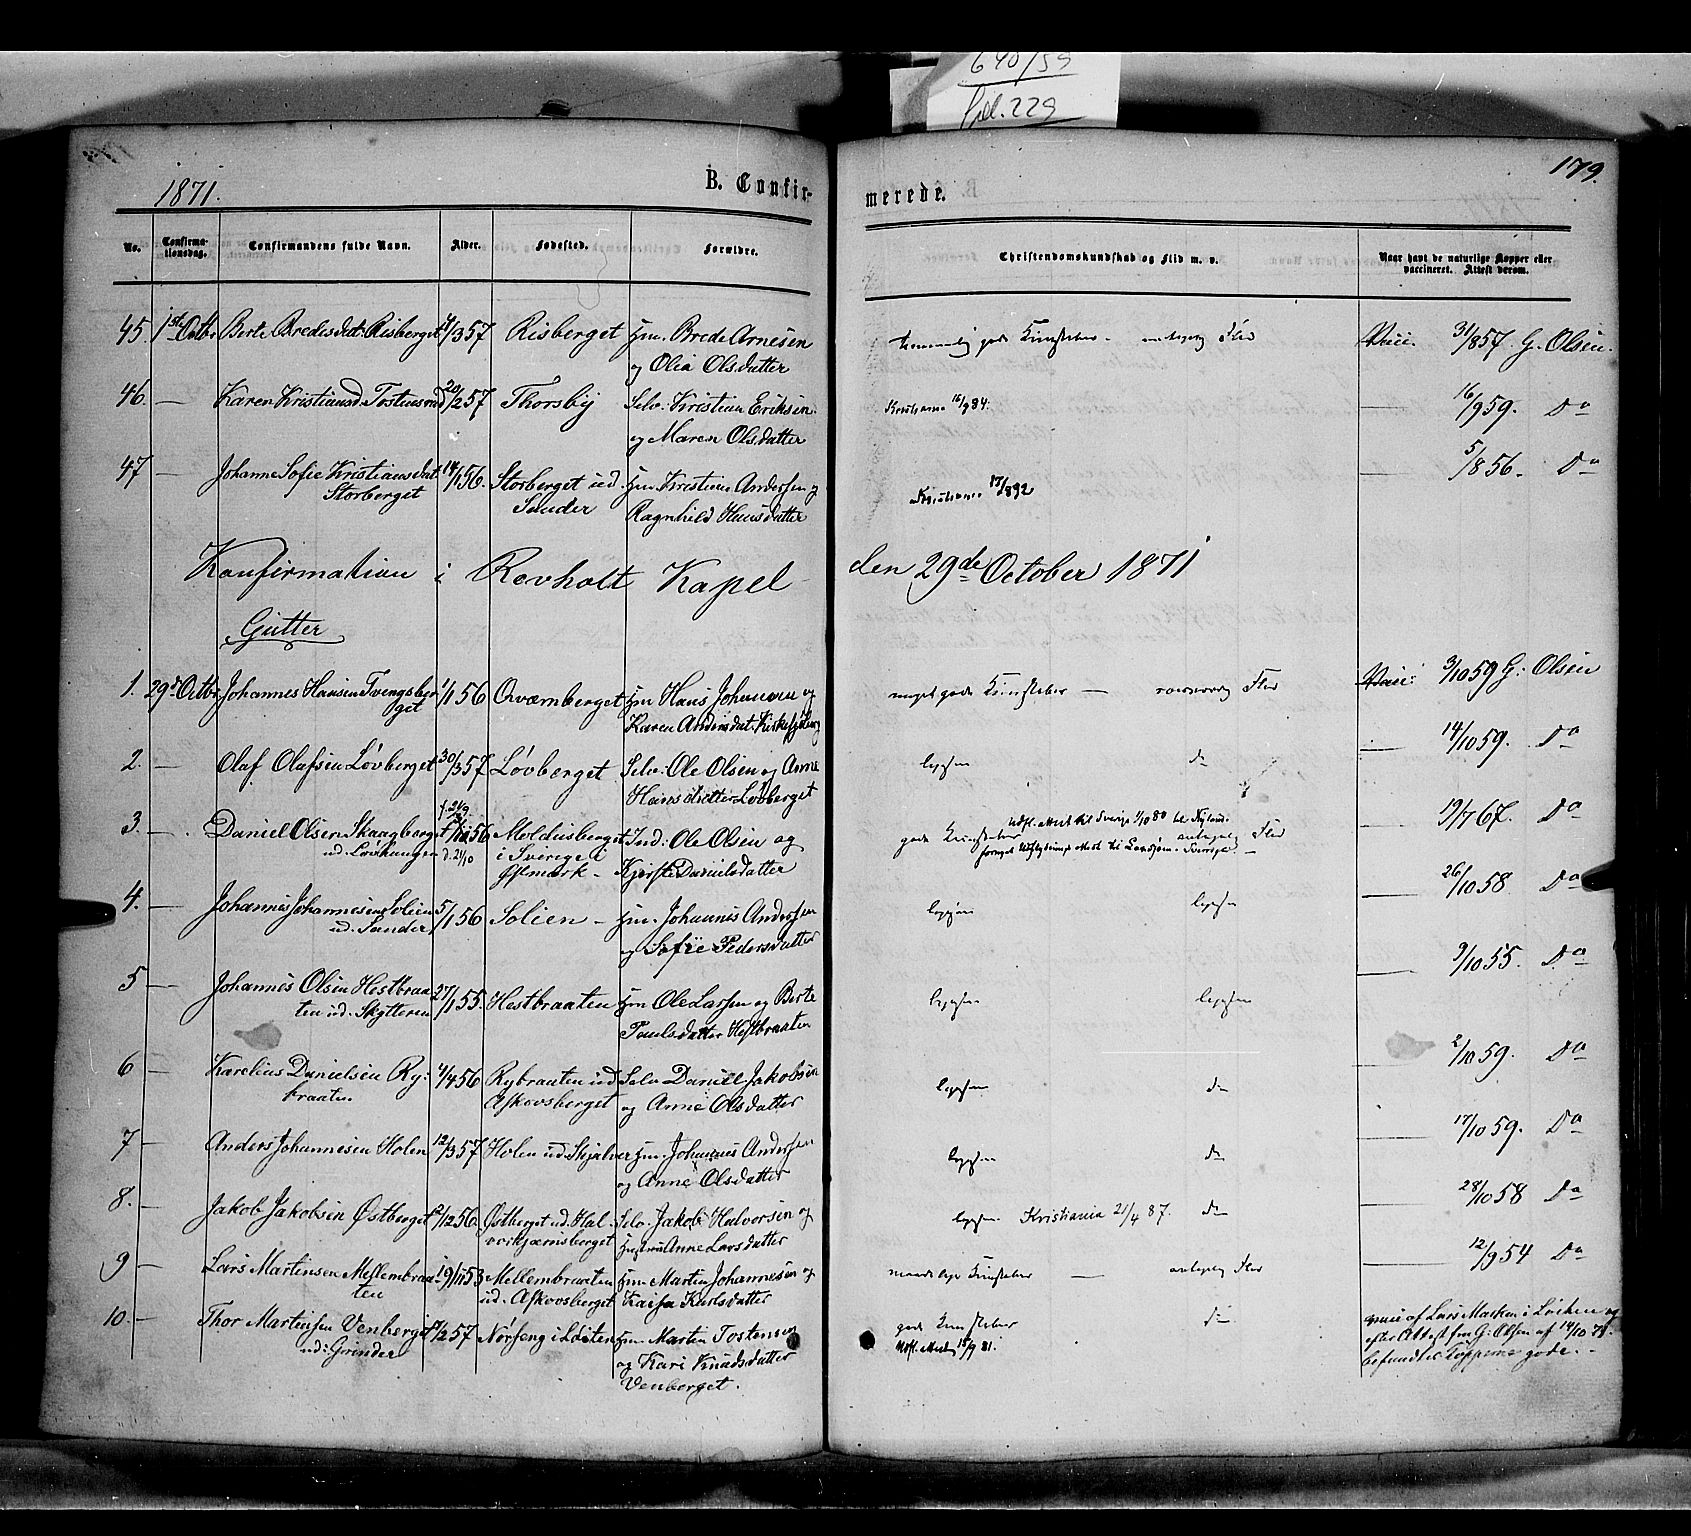 640/59
fol. 229
179.
1871.
B. Confir-
merede.
No.
Confirma-
tionsdag.
Confirmandens fulde Navn.
Alder.
Fødested.
Forældre.
Christendomskundskab og Flid m. v.
Naar havt de naturlige Kopper eller
vaccineret. Attest derom.
45. 1ste Octbr Berte Bredesdat: Risberget 4/3 57 Risberget Hm. Brede Arnesen
og Olia Olsdatter
temmelig gode Kundskaber - Flid
Vacc. 31/8 57. G. Olsen.
46. — Karen Kristiansd. Tostensrud 20/2 57 Thorsby Selv. Kristian Eriksen
og Maren Olsdatter
Kristiania 16/9 84.
— 16/9 59. Do
47 — Johanne Sofie Kristiansdat. 14/1 56. Storberget ud. Hm. Kristian Andersen og
Storberget Sander Ragnhild Hansdatter
Kristiania 17/8 92
— 5/8 56. Do
Konfirmation i Revholt Kapel den 29de October 1871
Gutter
1. 29de Octbr. Johannes Hansen Tvengsber 1/1 56 Qværnberget Hm Hans Johansen og
get Karen Andersdat.
meget gode Kundskaber — Flid
Vacc. 3/10 59 G: Olsen
2. — Olaf Olafsen Løvberget 30/3 57 Løvberget Selv: Ole Olsen og Anne
Hansdatter Løvberget
ligesaa do
— 14/10 59. Do
3. — Daniel Olsen Skaagberget 56 i Sverige i Ind: Ole Olsen og
ud. Løvhaugen d. 21/10 Østmark - Kjersti Danielsdatter
gode Kundskaber Flid
Udfl. attest til Sverige 1/10 80
— 19/7 67. Do
4. — Johannes Johannesen Solien 5/1 56 Solien - Hm. Johannes Andersen
ud. Sander og Sofie Pedersdatter
ligesaa ligesaa
— 26/10 58 Do
5 — Johannes Olsen Hestbraa 27/1 55. Hestbraaten Hm Ole Larsen og Berte
ten ud. Skytteren Paulsdatter Hestbraaten
ligesaa ligesaa
— 9/10 55. Do
6 — Karelius Danielsen Ry: 4/4 56 Rybraaten ud Selv Daniel Jakobsen
braaten Askovsberget og Anne Olsdatter
ligesaa do
— 2/10 59. Do
7 — Anders Johannesen Holen 12/3 57 Holen ud. Skjalver Hm. Johannes Andersen
og Anne Olsdatter
ligesaa do
— 17/10 59. Do
8. — Jakob Jakobsen Østberget 2/12 56. Østberget ud. Hal- Selv. Jakob Halvorsen og
vorkjærnsberget Hustru Anne Larsdatter
ligesaa Kristiania 21/4 87. do
— 28/10 58 Do
9 — Lars Martinsen Mellembraa- 19/11 53 Mellembraaten Hm Martin Johannesen og
ten ud. Askovsberget Kaisa Karlsdatter
maadelige Kundskaber — Flid
— 12/9 54 Do
10. — Thor Martinsen Venberget 1/2 57 Nørseng i Løiten Hm Martin Tostensen
ud: Grinder og Kari Knudsdatter
Venberget.
gode Kundskaber do
Udfl. attest 15/9 81.
af Lars Masken i Løiten og
efter Attest fra G: Olsen af 14/10 71.
befundet Kopperne gode. -